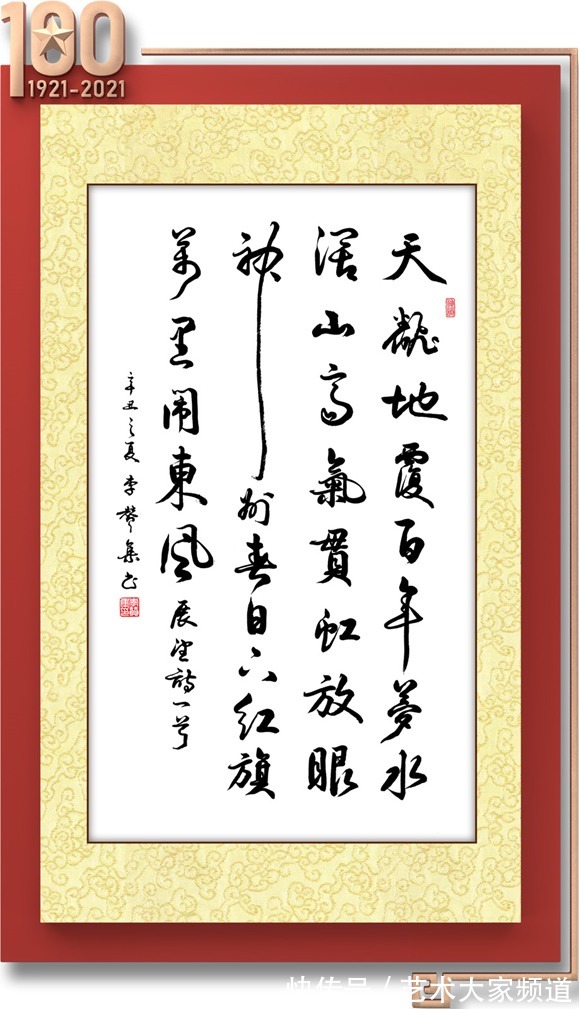 100
1921-2021
天翻地覆百年夢水
濶山高氣貫虹放眼
神州春日下红旗
萬里闹東風 展望诗一首
辛丑之夏 李集书
快传号 / 艺术大家频道